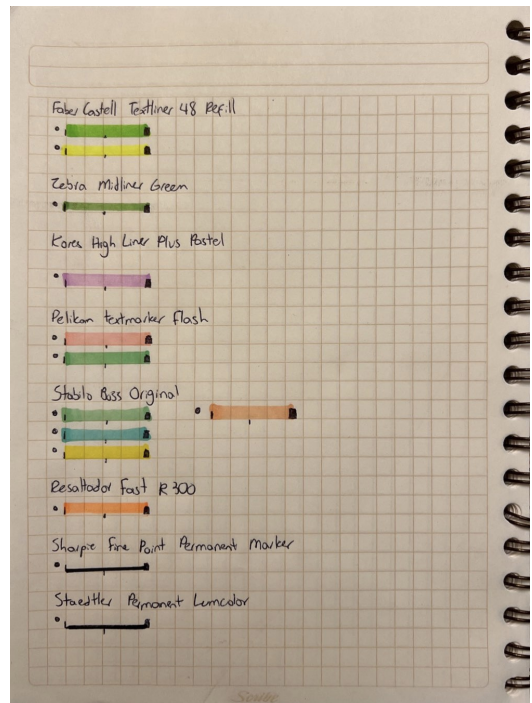 Faber Castell Textliner 48 Refill
Zebra Midliner Green
Kores High Liner Plus Pastel
Pelikan textmarker flash
Stabilo Boss Original
Resaltador Fast R300
Sharpie Fine Point Permanent Marker
Staedtler Permanent Lumcolor
Scribe